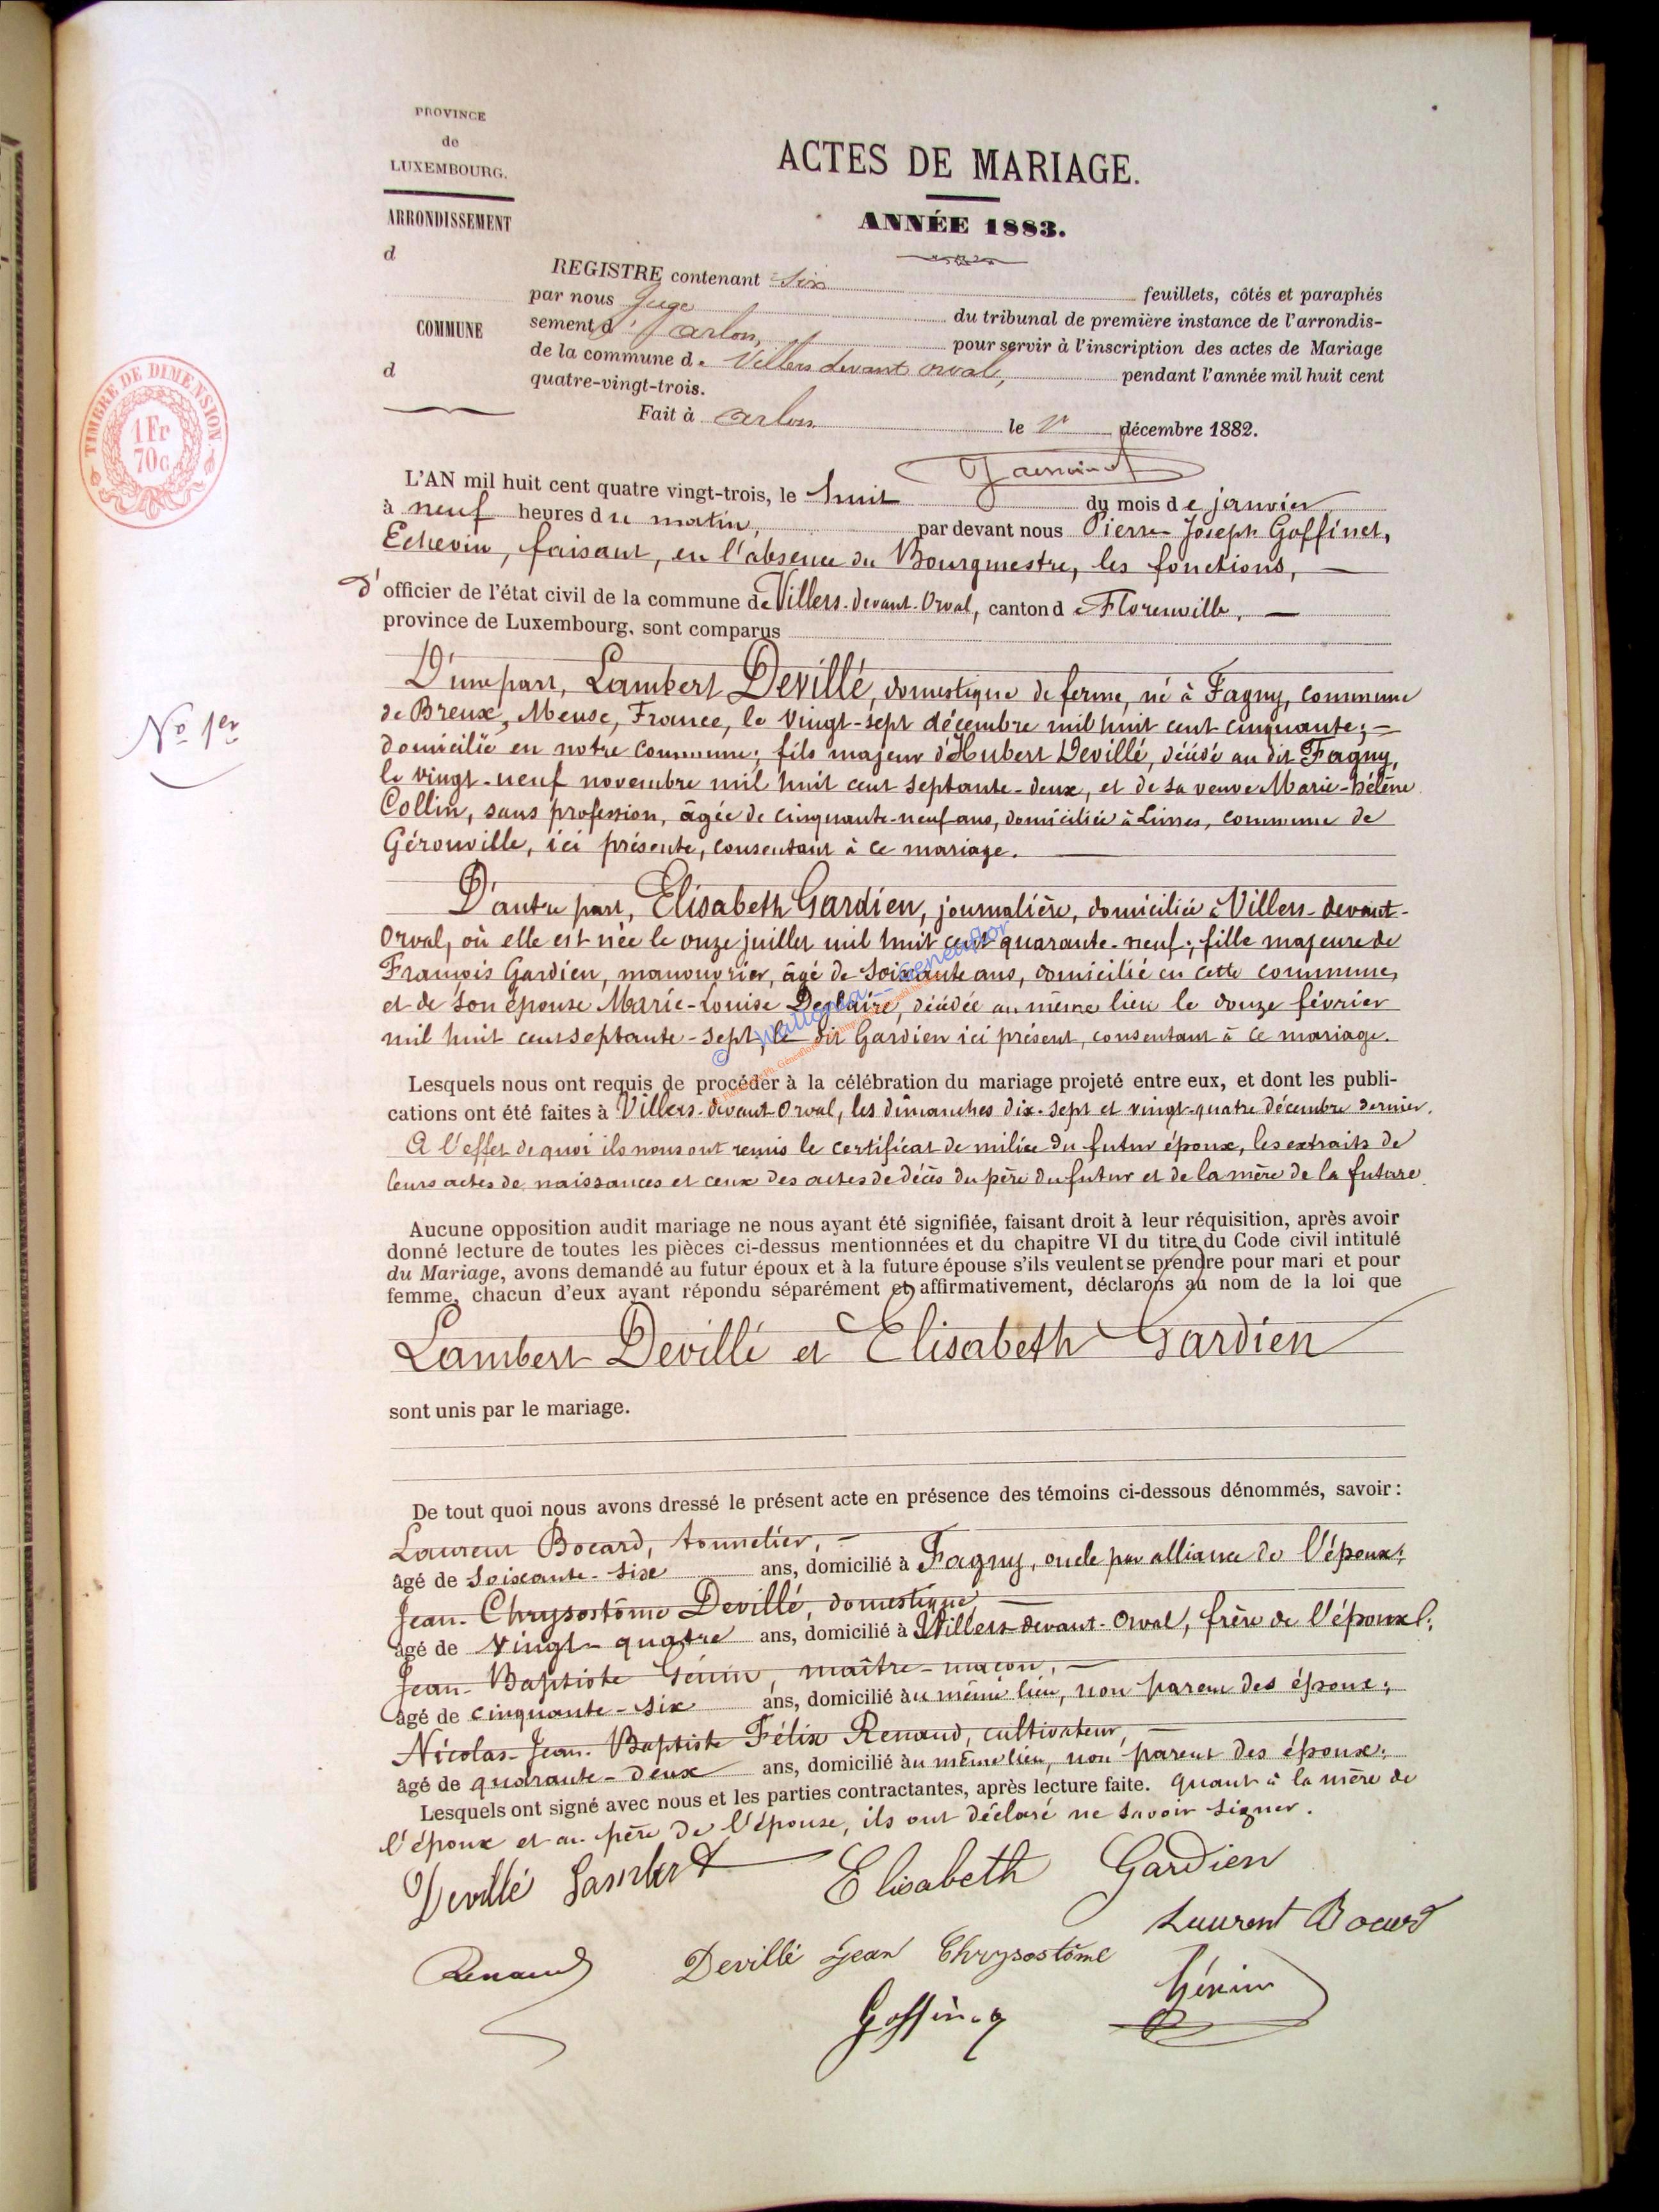 PROVINCE
de
LUXEMBOURG.
ARRONDISSEMENT
d
COMMUNE
d
TIMBRE DE DIMENSION.
1 Fr
70c
ACTES DE MARIAGE.
ANNÉE 1883.
REGISTRE contenant six feuillets, côtés et paraphés
par nous Juge du tribunal de première instance de l'arrondis-
sement d'arlon, pour servir à l'inscription des actes de Mariage
de la commune de Villers devant orval, pendant l'année mil huit cent
quatre-vingt-trois.
Fait à arlon le décembre 1882.
L'AN mil huit cent quatre vingt-trois, le huit du mois de janvier
à neuf heures du matin, par devant nous Pierre-Joseph Goffinet,
Echevin, faisant, en l'absence du Bourgmestre, les fonctions,
d'officier de l'état civil de la commune de Villers-devant-Orval, canton de Florenville,
province de Luxembourg, sont comparus
No 1er
D'une part, Lambert Devillé, domestique de ferme, né à Fagny, commune
de Breux, Meuse, France, le vingt-sept décembre mil huit cent cinquante;
domicilié en notre commune; fils majeur d'Hubert Devillé, décédé au dit Fagny,
le vingt-neuf novembre mil huit cent septante-deux, et de sa veuve Marie-hélène
Collin, sans profession, âgée de cinquante-neuf ans, domiciliée à Limes, commune de
Gérouville, ici présente, consentant à ce mariage.
D'autre part, Elisabeth Gardien, journalière, domiciliée à Villers-devant-
Orval, où elle est née le onze juillet mil huit cent quarante-neuf; fille majeure de
François Gardien, manouvrier, âgé de soixante ans, domicilié en cette commune,
et de son épouse Marie-Louise Deglaire, décédée au même lieu le douze février
mil huit cent septante-sept, le dit Gardien ici présent, consentant à ce mariage.
Lesquels nous ont requis de procéder à la célébration du mariage projeté entre eux, et dont les publi-
cations ont été faites à Villers-devant-Orval, les dimanches dix-sept et vingt-quatre décembre dernier.
A l'effet de quoi ils nous ont remis le certificat de milice du futur époux, les extraits de
leurs actes de naissances et ceux des actes de décès du père du futur et de la mère de la future.
Aucune opposition audit mariage ne nous ayant été signifiée, faisant droit à leur réquisition, après avoir
donné lecture de toutes les pièces ci-dessus mentionnées et du chapitre VI du titre du Code civil intitulé
du Mariage, avons demandé au futur époux et à la future épouse s'ils veulent se prendre pour mari et pour
femme, chacun d'eux ayant répondu séparément et affirmativement, déclarons au nom de la loi que
Lambert Devillé et Elisabeth Gardien
sont unis par le mariage.
De tout quoi nous avons dressé le présent acte en présence des témoins ci-dessous dénommés, savoir:
Laurent Bocard, tonnelier,
âgé de soixante-six ans, domicilié à Fagny, oncle par alliance de l'époux;
Jean-Chrysostôme Devillé, domestique,
âgé de vingt-quatre ans, domicilié à Villers-devant-Orval, frère de l'époux;
Jean-Baptiste Génin, maître-maçon,
âgé de cinquante-six ans, domicilié au même lieu, non parent des époux;
Nicolas-Jean-Baptiste Félix Renaud, cultivateur,
âgé de quarante-deux ans, domicilié au même lieu, non parent des époux;
Lesquels ont signé avec nous et les parties contractantes, après lecture faite. Quant à la mère de
l'époux et au père de l'épouse, ils ont déclaré ne savoir signer.
Devillé Lambert Elisabeth Gardien
Laurent Bocard
Renaud Devillé Jean Chrysostôme
Génin
Goffinet